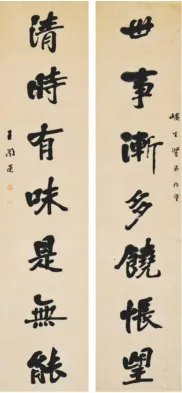 世事漸多饒悵望
清時有味是無能
王闓運